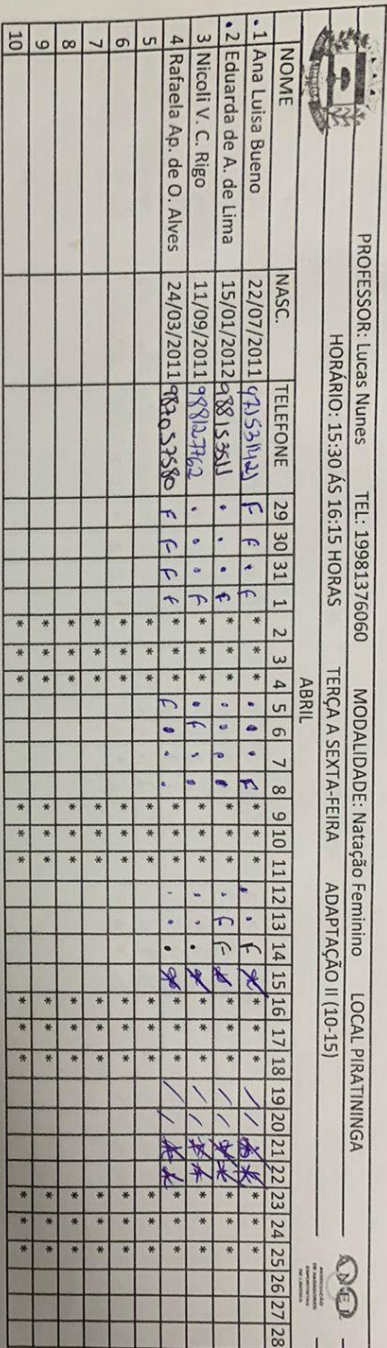 PROFESSOR: Lucas Nunes TEL: 19981376060 MODALIDADE: Natação Feminino LOCAL PIRATININGA
HORÁRIO: 15:30 ÁS 16:15 HORAS TERÇA A SEXTA-FEIRA ADAPTAÇÃO II (10-15)
ABRIL
NOME NASC. TELEFONE 29 30 31 1 2 3 4 5 6 7 8 9 10 11 12 13 14 15 16 17 18 19 20 21 22 23 24 25 26 27 28
• 1 Ana Luisa Bueno 22/07/2011 F F • F * * * • • • F * * * • • F * * * * / / * * * * *
• 2 Eduarda de A. de Lima 15/01/2012 988153511 • • • F * * * • • • • * * * • F F * * * * / / * * * * *
3 Nicoli V. C. Rigo 11/09/2011 988127762 • • • F * * * • F • • * * * • • • * * * * / / * * * * *
4 Rafaela Ap. de O. Alves 24/03/2011 987057580 F F F F * * * F • • • * * * • • • * * * * / / * * * * *
5 * * * * * * * * * * * *
6 * * * * * * * * * * * *
7 * * * * * * * * * * * *
8 * * * * * * * * * * * *
9 * * * * * * * * * * * *
10 * * * * * * * * * * * *